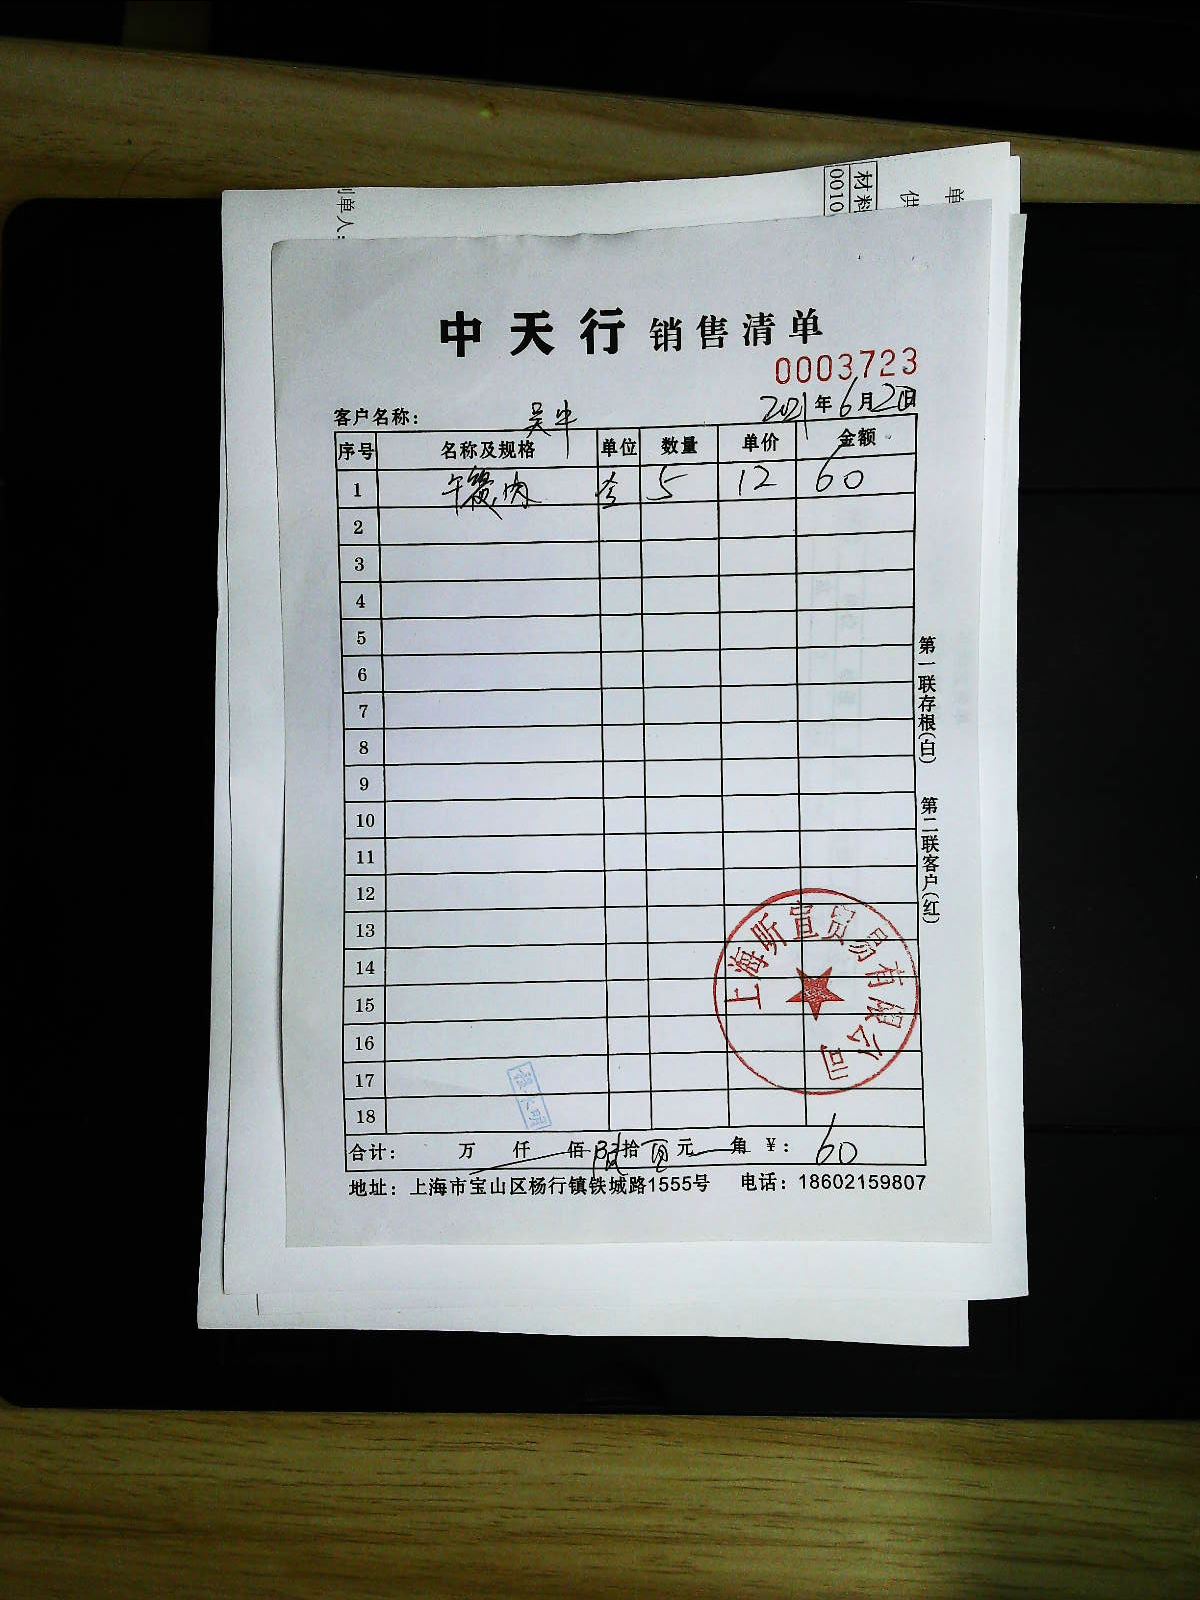 制单人:
材料
0010
单
供
中天行 销售清单
0003723
客户名称: 吴牛 2021年6月20日
序号 名称及规格 单位 数量 单价 金额
1 午餐肉 5 12 60
2
3
4
5
6
7
8
9
10
11
12
13
14
15
16
17
18
第一联存根(白) 第二联客户(红)
上海昕宣贸易有限公司
合计: 万 仟 佰 陆拾 元 角 ¥: 60
地址: 上海市宝山区杨行镇铁城路1555号 电话: 18602159807